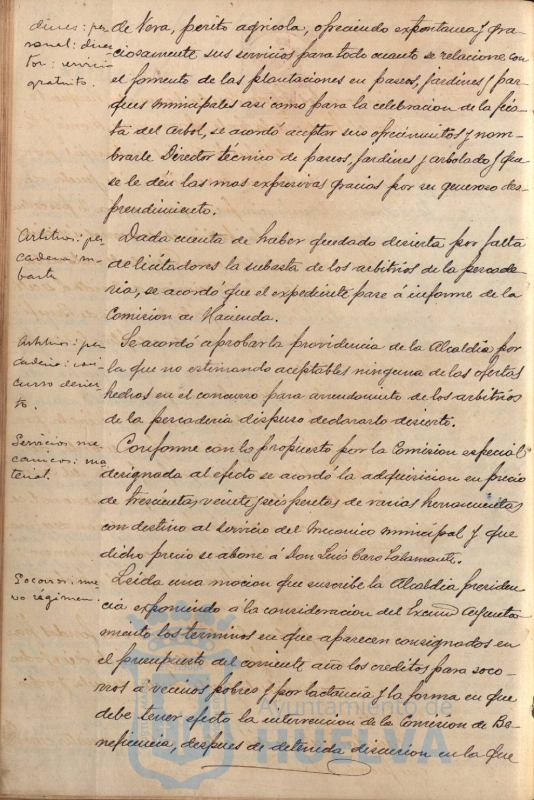 dines: per
sonal: direc
tor: servicio
gratuito.
de Vera, perito agricola, ofreciendo expontanea y gra-
ciosamente sus servicios para todo cuanto se relacione con
el fomento de las plantaciones en paseos, jardines y par-
ques municipales asi como para la celebracion de la fies-
ta del Arbol, se acordó aceptar sus ofrecimientos y nom-
brarle Director técnico de paseos, jardines y arbolado y que
se le dén las mas expresivas gracias por su generoso des-
prendimiento.
Arbitrios: pes
caderia: su
basta
Dada cuenta de haber quedado desierta por falta
de licitadores la subasta de los arbitrios de la pescade-
ria, se acordó que el expediente pase á informe de la
Comision de Hacienda.
Arbitrios: pes
caderia: con
curso desier
to.
Se acordó aprobar la providencia de la Alcaldia por
la que no estimando aceptables ninguna de las ofertas
hechas en el concurso para arrendamiento de los arbitrios
de la pescaderia dispuso declararlo desierto.
Servicios me
canicos: ma
terial.
Conforme con lo propuesto por la Comision especial
designada al efecto se acordó la adquisicion en precio
de trescientas veinte y seis pesetas de varias herramientas
con destino al servicio del Mecanico municipal y que
dicho precio se abone á Don Luis Caro
Socorros: nue
vo régimen
Leida una mocion que suscribe la Alcaldia presiden-
cia exponiendo á la consideracion del Excmo Ayunta-
miento los terminos en que aparecen consignados en
el presupuesto del corriente año los creditos para soco-
rros a vecinos pobres y por lactancia y la forma en que
debe tener efecto la intervencion de la Comision de Be-
neficencia, despues de detenida discusion en la que
Ayuntamiento de
HUELVA